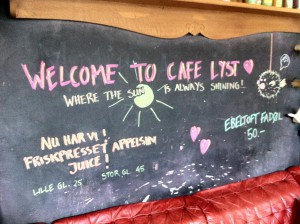 WELCOME TO CAFE LYST
WHERE THE SUN IS ALWAYS SHINING!
NU HAR VI!
FRISKPRESSET APPELSIN
JUICE!
LILLE GL. 25 STOR GL. 45
EBELTOFT FADØL
50.-